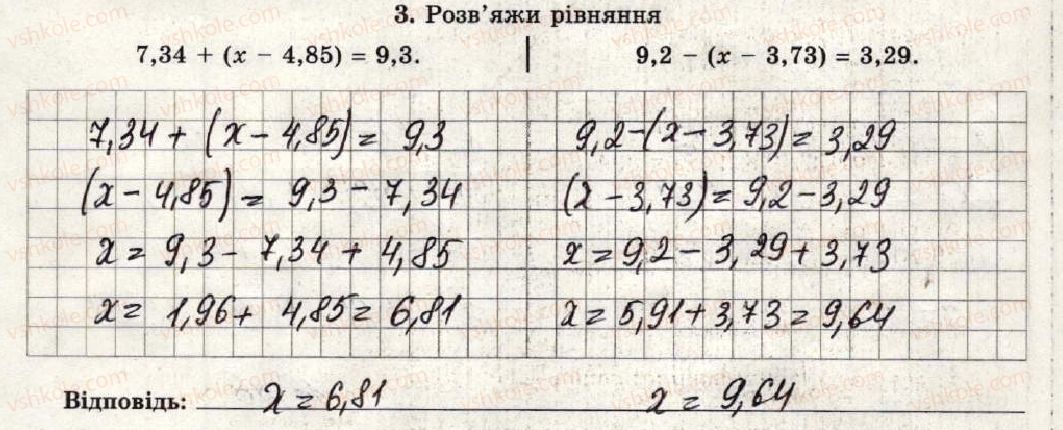 3. Розв'яжи рівняння
7,34 + (x − 4,85) = 9,3.
9,2 − (x − 3,73) = 3,29.
7,34 + (x − 4,85) = 9,3
(x − 4,85) = 9,3 − 7,34
x = 9,3 − 7,34 + 4,85
x = 1,96 + 4,85 = 6,81
9,2 − (x − 3,73) = 3,29
(x − 3,73) = 9,2 − 3,29
x = 9,2 − 3,29 + 3,73
x = 5,91 + 3,73 = 9,64
Відповідь: x = 6,81 x = 9,64
vshkole.com